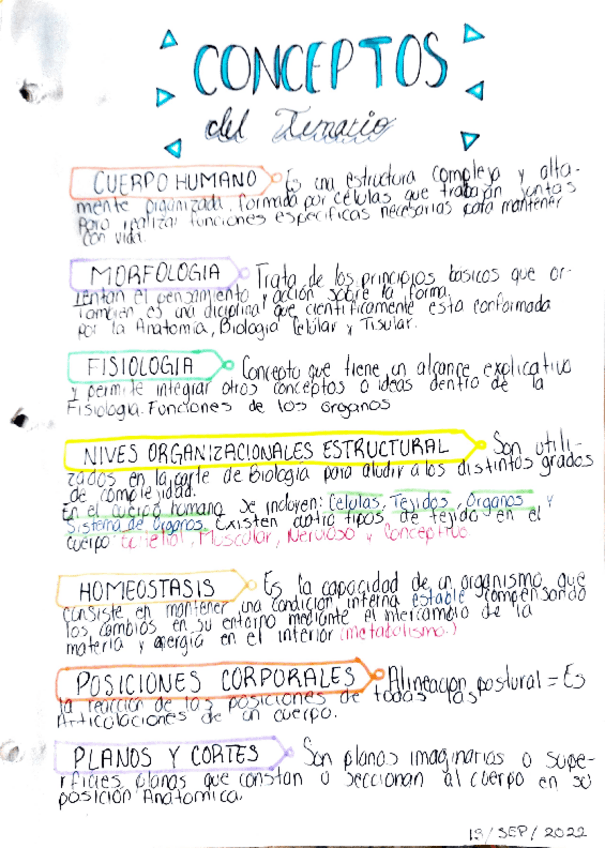 CONCEPTOS
del Temario
CUERPO HUMANO Es una estructura compleja y alta-
mente organizada, formada por células que trabajan juntas
para realizar funciones especificas necesarias para mantener
con vida.
MORFOLOGIA Trata de los principios basicos que or-
ientan el pensamiento y acción sobre la forma.
Tambien es una diciplina que cientificamente esta conformada
por la Anatomia, Biologia Celular y Tisular.
FISIOLOGIA Concepto que tiene un alcance explicativo
y permite integrar otros conceptos o ideas dentro de la
Fisiologia. Funciones de los organos
NIVES ORGANIZACIONALES ESTRUCTURAL Son utili-
zados en la parte de Biologia para aludir a los distintos grados
de complejidad.
En el cuerpo humano se incluyen: Celulas, Tejidos, Organos y
Sistema de organos. Existen cuatro tipos de tejido en el
cuerpo Epitelial, Muscular, Nervioso y Conectivo.
HOMEOSTASIS Es la capacidad de un organismo, que
consiste en mantener una condicion interna estable compensando
los cambios en su entorno mediante el intercambio de la
materia y energia en el interior (metabolismo.)
POSICIONES CORPORALES Alineacion postural = Es
la reacción de las posiciones de todas las
Articulaciones de un cuerpo.
PLANOS Y CORTES Son planos imaginarios o supe-
rficies planas que constan o seccionan al cuerpo en su
posición Anatomica.
13/SEP/2022